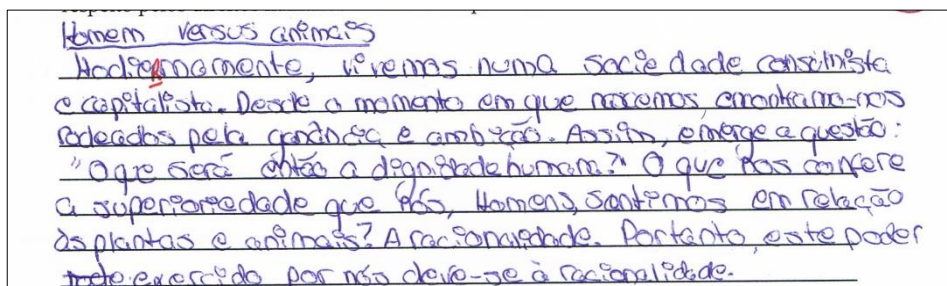 Homem versus animais
Hodiernamente, vivemos numa sociedade consumista
e capitalista. Desde o momento em que nascemos encontramo-nos
rodeados pela ganância e ambição. Assim, emerge a questão:
"O que será então a dignidade humana?" O que nos confere
a superioriedade que nós, Homens, sentimos em relação
às plantas e animais? A racionalidade. Portanto, este poder
exercido por nós deve-se à racionalidade.